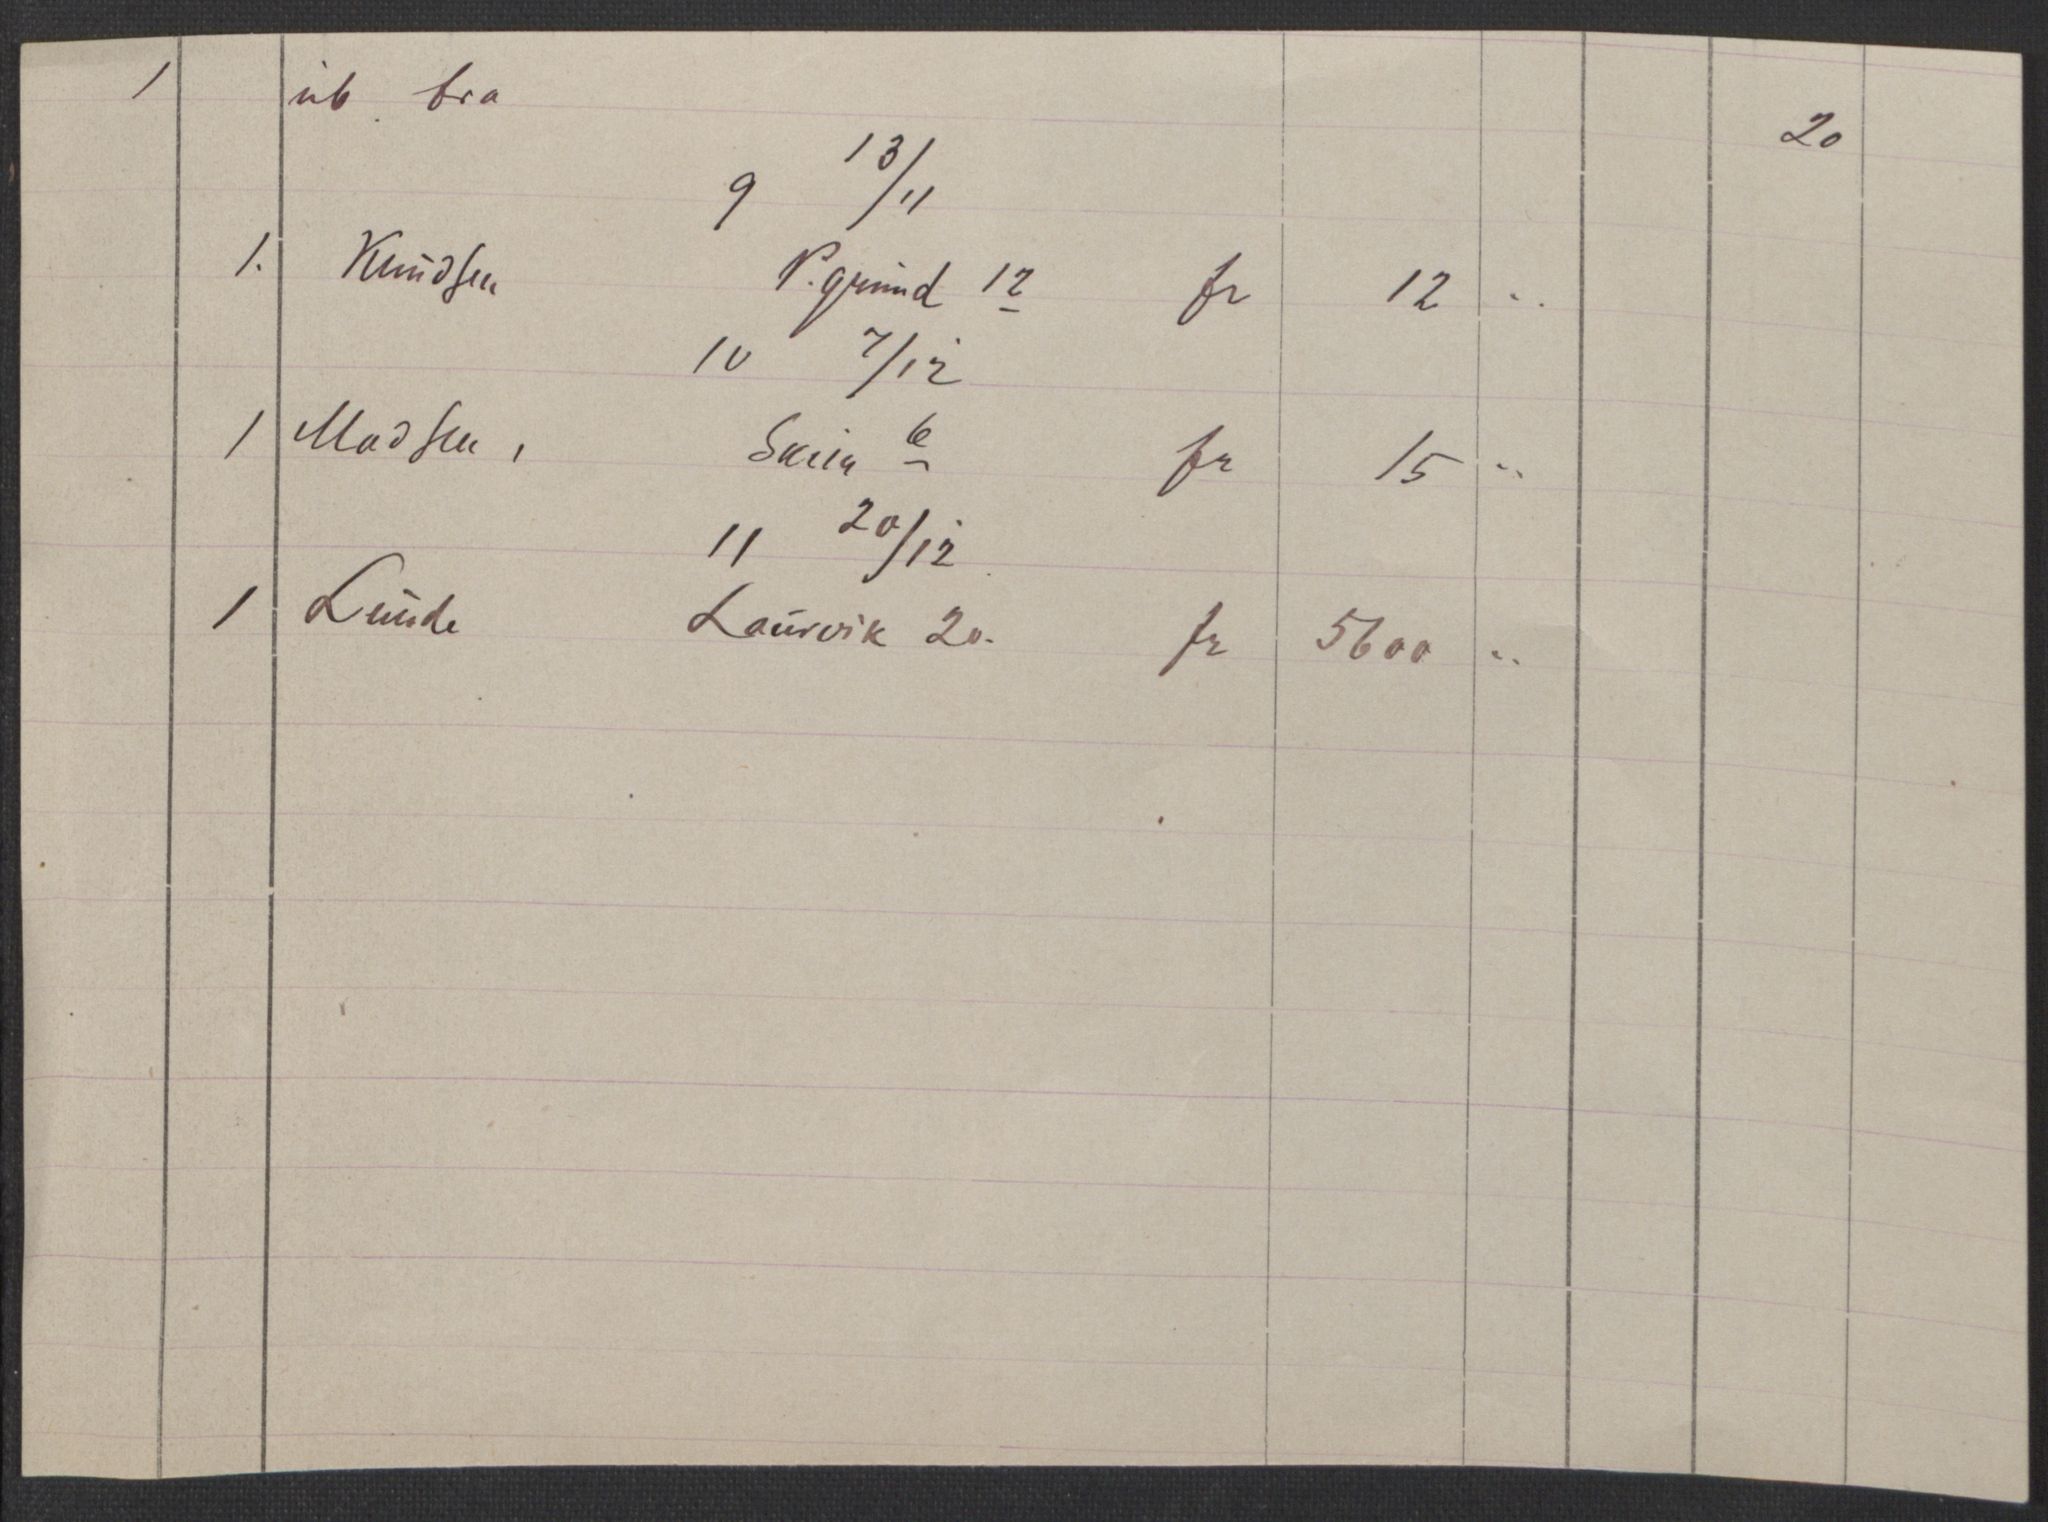 1 ub bra 20
9 13/11
1. Knudsen P.grund 12 fr 12 "
10 7/12
1 Madsen, Skien 6 fr 15 "
11 20/12
1 Lunde Laurvik 20. fr 5600 "